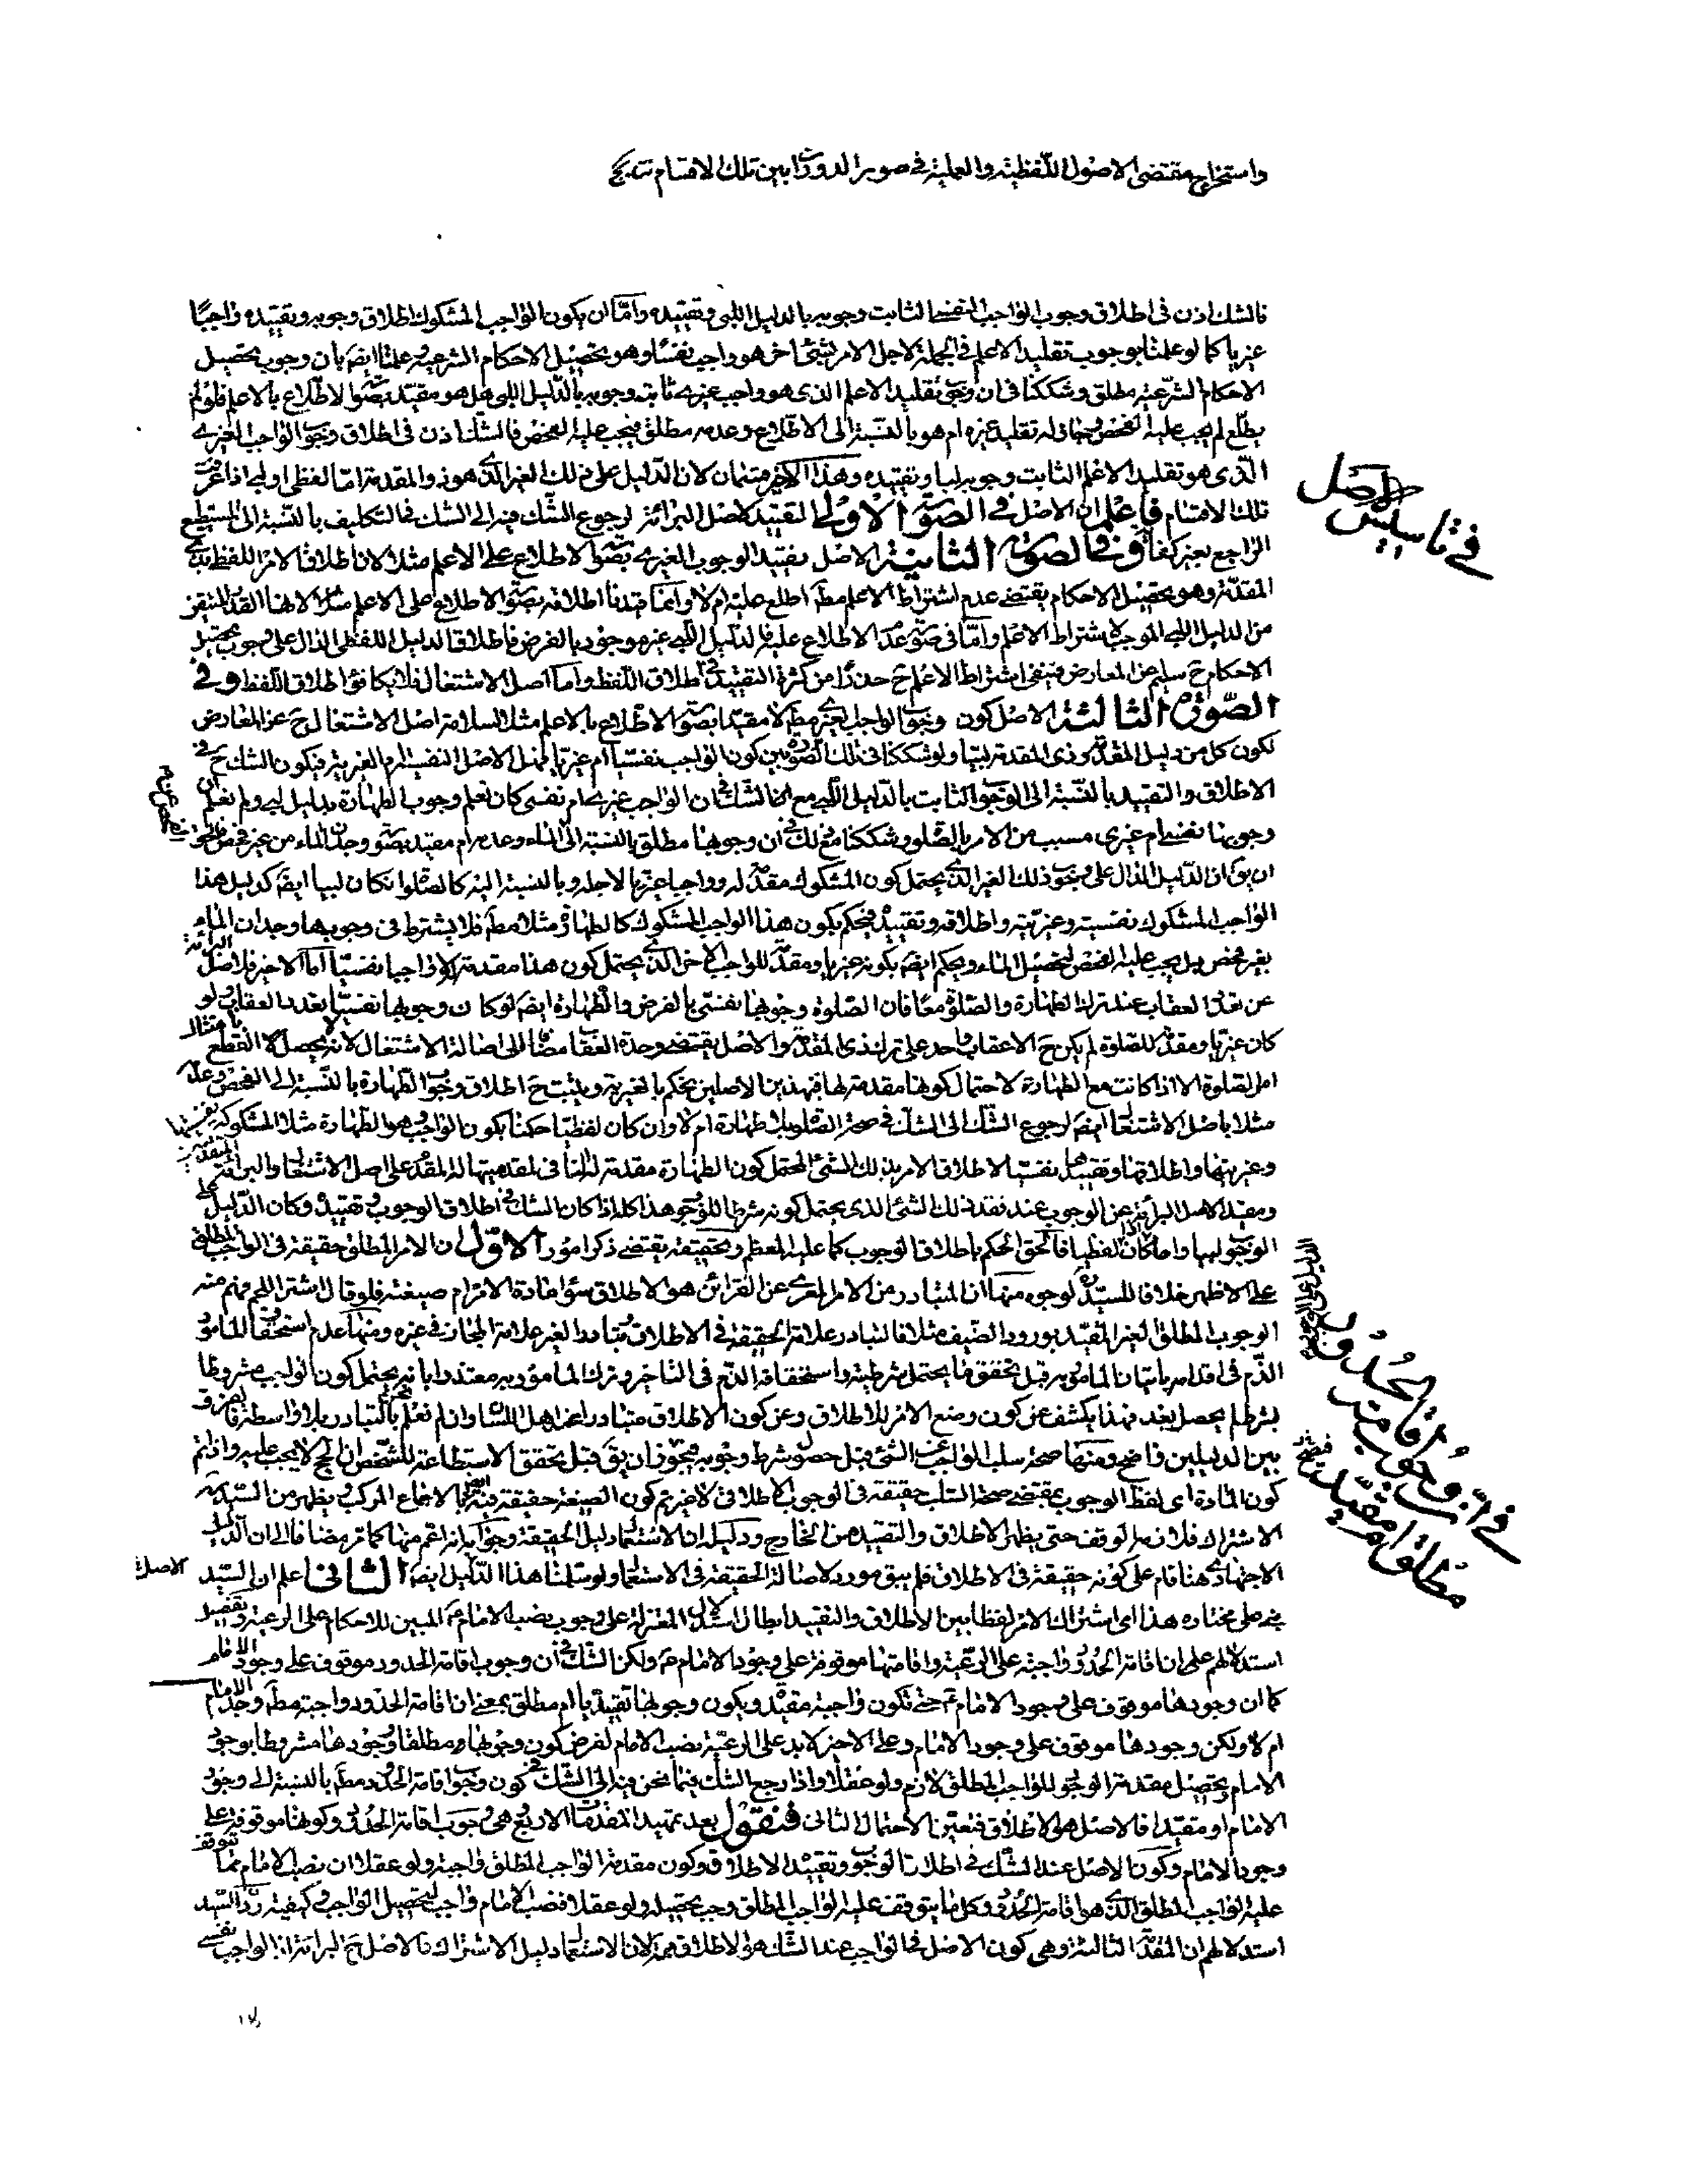 واستخراج مقتضى الاصول اللفظية والعملية في صور الدوران بين تلك الاقسام
فالشك اذن فى اطلاق وجوب الواجب النفسى الثابت وجوبه بالدليل اللبى وتقييده وامّا ان يكون الواجب المشكوك اطلاق وجوبه وتقييده واجبًا
غيريا كما لو علمنا بوجوب تقليد الاعلم فى الجملة لاجل الامر بشئ اخر هو واجب نفسًا وهو تحصيل الاحكام الشرعية وعلمنا ايضَ بان وجوب تحصيل
الاحكام الشرعية مطلق وشككنا فى ان وجوب تقليد الاعلم الذى هو واجب غيرى ثابت وجوبه بالدليل اللبى هل هو مقيد بصورة الاطلاع بالاعلم فلو لم
يطلع لم يجب عليه الفحص وجاز له تقليد غيره ام هو بالنسبة الى الاطلاع وعدمه مطلق فيجب عليه الفحص فالشك اذن فى اطلاق وجوب الواجب الغيرى
الذى هو تقليد الاعلم الثابت وجوبه لبيا وتقييده وهذا الاخير قسمان لان الدليل على ذلك الغير الذى هو ذو المقدمة امّا لفظى او لبى اذا عرفت
تلك الاقسام فاعلم ان الاصل فى الصورة الاولى التقييد لاصل البرائة لرجوع الشك فيه الى الشك فى التكليف بالنسبة الى المستطيع
الراجع بغير كفاف وفى الصورة الثانية الاصل تقييد الوجوب الغيرى بصورة الاطلاع على الاعلم مثلا لان اطلاق الامر اللفظى بذى
المقدمة وهو تحصيل الاحكام يقتضى عدم اشتراط الاعلم مطَ اطلع عليه ام لا وانما قيدنا اطلاقه بصورة الاطلاع على الاعلم مثلا لانها القدر المتيقن
من الدليل اللبى الموجب لاشتراط الاعلم وامّا فى صورة عدم الاطلاع عليه فالدليل اللبى غير موجود بالفرض فاطلاق الدليل اللفظى الدال على وجوب تحصيل
الاحكام حَ سليم عن المعارض فينفى اشتراط الاعلم حَ حذرًا من كثرة التقييد فى اطلاق اللفظ وامّا اصل الاشتغال فلا يكافؤ اطلاق اللفظ وفى
الصورة الثالثة الاصل كون وجوب الواجب الغيرى مطَ لا مقيدا بصورة الاطلاع بالاعلم مثلا لسلامة اصل الاشتغال حَ عن المعارض
لكون كل من دليل المقدمة وذى المقدمة لبيا ولو شككنا فى تلك الصورة بين كون الواجب نفسيا ام غيريا فهل الاصل النفسية ام الغيرية فيكون الشك حَ فى
الاطلاق والتقييد بالنسبة الى الوجوب الثابت بالدليل اللبى مع الشك فى ان الواجب غيرى ام نفسى كان نعلم وجوب الطهارة بدليل لبى ولم نعلم ان
وجوبها نفسى ام غيرى مسبب من الامر بالصلوة وشككنا مع ذلك فى ان وجوبها مطلق بالنسبة الى الماء وعدمه ام مقيد بصورة وجدان الماء من غير فحص
ان يق ان الدليل الدال على وجوب ذلك الغير الذى يحتمل كون المشكوك مقدمة له وواجبا غيريا لاجله وبالنسبة اليه كالصلوة ان كان لبيا ايضَ كدليل هذا
الواجب المشكوك نفسيته وغيريته واطلاقه وتقييده فيحكم بكون هذا الواجب المشكوك كالطهارة مثلا مطَ فلا يشترط فى وجوبها وجدان الماء
بغير فحص بل يجب عليه الفحص لتحصيل الماء ويحكم ايضَ بكونه غيريا ومقدمة للواجب الاخر الذى يحتمل كون هذا مقدمة له لا واجبا نفسيّا امّا الاخير فلاصل البرائة
عن تعدد العقاب عند ترك الطهارة والصلوة معًا فان الصلوة وجوبها نفسى بالفرض والطهارة ايضَ لو كان وجوبها نفسيّا تعدد العقاب ولو
كان غيريا ومقدمة للصلوة لم يكن حَ الا عقاب واحد على ترك ذى المقدمة والاصل يقتضى وحدة العقاب مضافا الى اصالة الاشتغال لانه لا يحصل القطع بامتثال
امر الصلوة الا اذا كانت مع الطهارة لاحتمال كونها مقدمة لها فبهذين الاصلين يحكم بالغيرية ويثبت حَ اطلاق وجوب الطهارة بالنسبة الى الفحص وعدمه
مثلا باصل الاشتغال ايضَ لرجوع الشك الى الشك فى صحة الصلوة بلا طهارة ام لا وان كان لفظيا حكمنا بكون الواجب وهو الطهارة مثلا المشكوكة نفسيتها
وغيريتها واطلاقها وتقييدها نفسيا لاطلاق الامر بذلك الشئ المحتمل كون الطهارة مقدمة له النافى لمقدميتها له المقدم على اصل الاشتغال والبرائة
ومقيدا لاصل البرائة عن الوجوب عند فقد ذلك الشئ الذى يحتمل كونه شرطا للوجوب هذا كله اذا كان الشك فى اطلاق الوجوب وتقييده وكان الدليل على
الوجوب لبيا واما اذا كان لفظيا فالحق الحكم باطلاق الوجوب كما عليه المعظم وتحقيقه يقتضى ذكر امور الاول ان الامر المطلق حقيقة فى الواجب المطلق
على الاظهر خلافا للسيد ره لوجوه منها ان المتبادر من الامر المعرى عن القرائن هو الاطلاق سواء مادة الامر ام صيغته فلو قال اشتر اللحم فهم منه
الوجوب المطلق الغير المقيد بورود الضيف مثلا فالتبادر علامة الحقيقة فى الاطلاق وتبادر الغير علامة المجاز فى غيره ومنها عدم استحقاق المامور
الذم فى اقدامه باتيان المامور به قبل تحقق ما يحتمل شرطيته واستحقاقه الذم فى التاخير وترك المامور به معتذرا بانه يحتمل كون الواجب مشروطا
بشرط لم يحصل بعد فهذا يكشف عن كون وضع الامر للاطلاق وعن كون الاطلاق متبادرا عند اهل اللسان وان لم نعلم نحن بالتبادر بلا واسطة فالفرق
بين الدليلين واضح ومنها صحة سلب الواجب عن الشئ قبل حصول شرط وجوبه فيجوز ان يق قبل تحقق الاستطاعة للشخص ان الحج لا يجب عليه واذا تم
كون المادة اى لفظ الوجوب بمقتضى صحة السلب حقيقة فى الوجوب الاطلاقى لا غير تم كون الصيغة حقيقة فيه ايضَ بالاجماع المركب ويظهر من السيد ره
الاشتراك فلازمه التوقف حتى يظهر الاطلاق والتقييد من الخارج ودليله ان الاستعمال دليل الحقيقة وجوابه انه اعم منها كما مر مضافا الى ان الدليل
الاجتهادى هنا قام على كونه حقيقة فى الاطلاق فلم يبق مورد لاصالة الحقيقة فى الاستعمال ولو سلمنا هذا الدليل ايضَ الثانى اعلم ان السيد الاصل
بنى على مختاره هذا اى اشتراك الامر لفظا بين الاطلاق والتقييد ابطال استدلال المعتزلة على وجوب نصب الامام المبين للاحكام على الرعية وتفصيل
استدلالهم على ان اقامة الحدود واجبة على الرعية واقامتها موقوفة على وجود الامام عَ ولكن الشك فى ان وجوب اقامة الحدود موقوف على وجود الامام
كما ان وجودها موقوف على وجود الامام عَ حتى تكون واجبة مقيدة ويكون وجوبها تقييديا ام مطلق بمعنى ان اقامة الحدود واجبة مطَ وجد الامام
ام لا ولكن وجودها موقوف على وجود الامام وعلى الاخير لابد على الرعية نصب الامام لفرض كون وجوبها مطلقا ووجودها مشروطا بوجود
الامام وتحصيل مقدمة الوجود للواجب المطلق لازم ولو عقلا واذا رجع الشك فيما نحن فيه الى الشك فى كون وجوب اقامة الحدود مطَ بالنسبة الى وجود
الامام او مقيدا فالاصل هو الاطلاق فتعين الاحتمال الثانى فنقول بعد تمهيد المقدمات الاربع هى وجوب اقامة الحدود وكونها موقوفة على
وجود الامام وكون الاصل عند الشك فى اطلاق الوجوب وتقييده الاطلاق وكون مقدمة الواجب المطلق واجبة ولو عقلا ان نصب الامام مما يتوقف
عليه الواجب المطلق الذى هو اقامة الحدود وكل ما يتوقف عليه الواجب المطلق وجب تحصيله ولو عقلا فنصب الامام واجب لتحصيل الواجب وكيفية رد السيد
استدلالهم ان المقدمة الثالثة وهى كون الاصل فى الواجب عند الشك هو الاطلاق ممَ لان الاستعمال دليل الاشتراك فالاصل حَ البرائة اذ الواجب نفسى
فى تاسيس
الاصل
فى ان وجوب اقامة الحدود
مطلق او مقيد